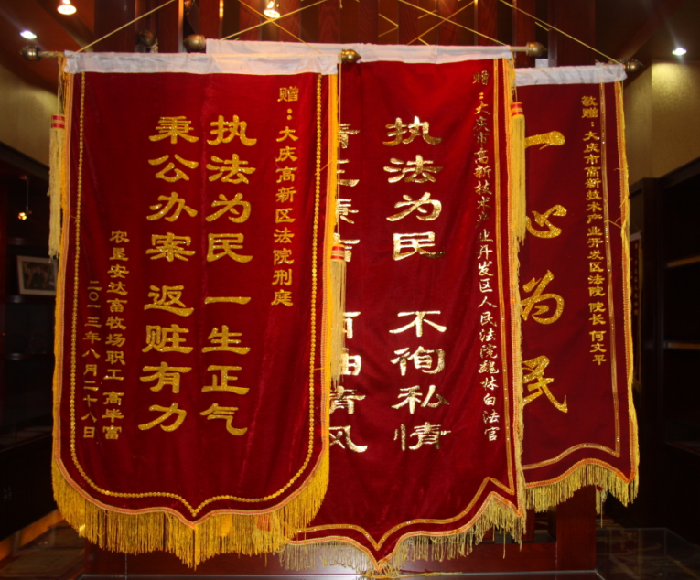 赠：大庆高新区法院刑庭
执法为民 一生正气
秉公办案 返赃有力
农垦安达畜牧场职工 高半富
二〇一三年八月二十八日
赠：大庆市高新技术产业开发区人民法院魏林白法官
执法为民 不徇私情
清风
敬赠：大庆市高新技术产业开发区法院 院长 何文平
一心为民